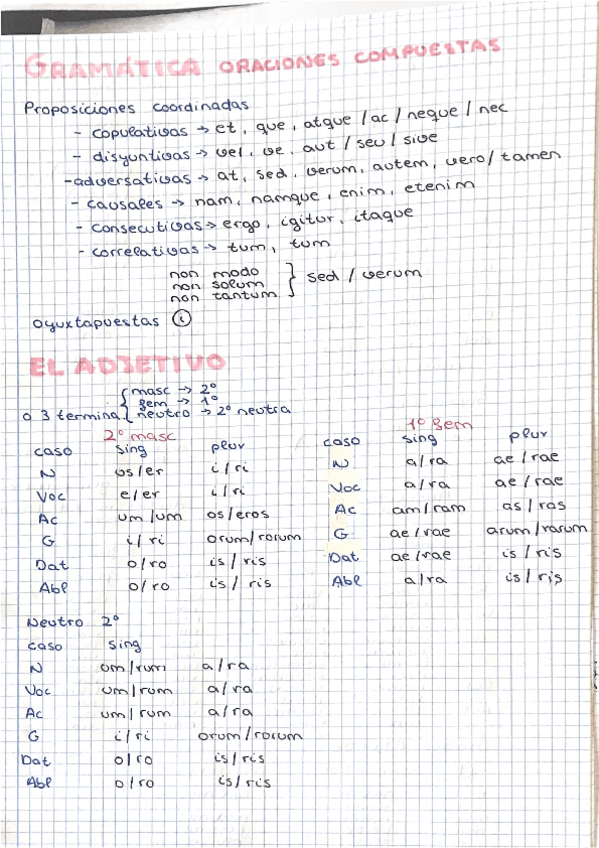 GRAMÁTICA ORACIONES COMPUESTAS
Proposiciones coordinadas
- copulativas → et, que, atque / ac / neque / nec
- disyuntivas → vel, ve, aut / seu / sive
- adversativas → at, sed, verum, autem, vero / tamen
- causales → nam, namque, enim, etenim
- consecutivas → ergo, igitur, itaque
- correlativas → tum, tum
non modo
non solum } sed / verum
non tantum
o yuxtapuestas (i)
EL ADJETIVO
masc → 2º
fem → 1º
o 3 termina { neutro → 2º neutra
2º masc
caso sing plur
N us/er i/ri
Voc e/er i/ri
Ac um/um os/eros
G i/ri orum/rorum
Dat o/ro is/ris
Abl o/ro is/ris
1º fem
caso sing plur
N a/ra ae/rae
Voc a/ra ae/rae
Ac am/ram as/ras
G ae/rae arum/rarum
Dat ae/rae is/ris
Abl a/ra is/ris
Neutro 2º
caso sing
N um/rum a/ra
Voc um/rum a/ra
Ac um/rum a/ra
G i/ri orum/rorum
Dat o/ro is/ris
Abl o/ro is/ris